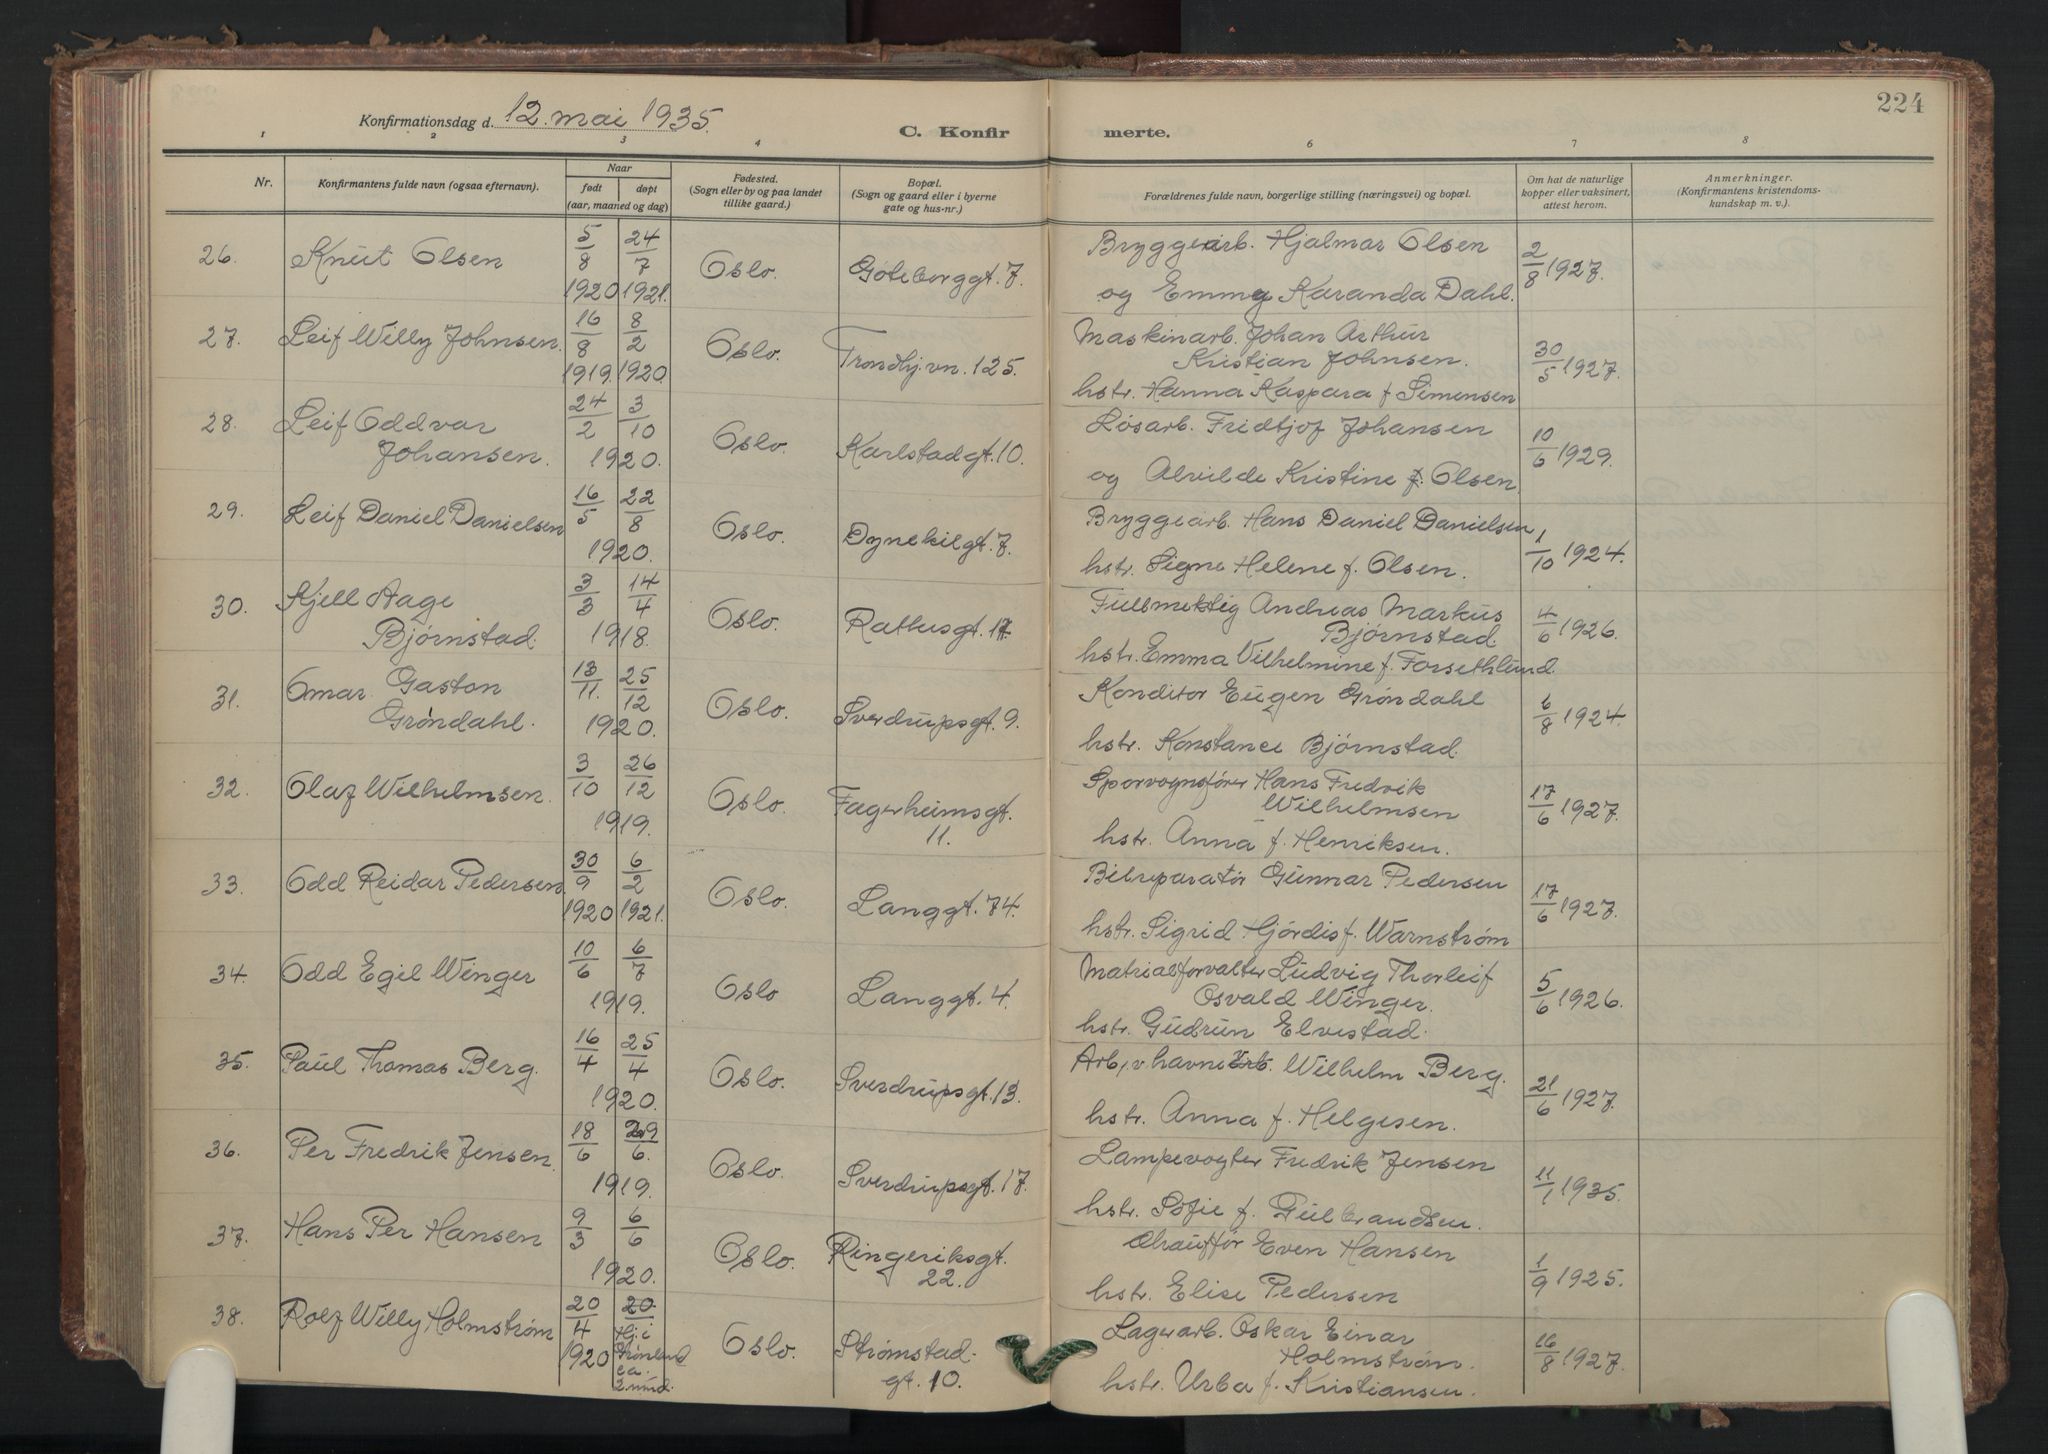 224
Konfirmationsdag d. 12. mai 1935.
C. Konfirmerte.
1 2 3 4 6 7 8
Nr.
Konfirmantens fulde navn (ogsaa efternavn).
Naar
født døpt
(aar, maaned og dag)
Fødested.
(Sogn eller by og paa landet
tillike gaard.)
Bopæl.
(Sogn og gaard eller i byerne
gate og hus-nr.)
Forældrenes fulde navn, borgerlige stilling (næringsvei) og bopæl.
Om hat de naturlige
kopper eller vaksinert,
attest herom.
Anmerkninger.
(Konfirmantens kristendoms-
kundskap m. v.)
26. Knut Olsen 5/8 1920 24/7 1921. Oslo. Göteborggt. 7. Bryggearb. Hjalmar Olsen 2/8 1927.
og Emmy Karanda Dahl.
27. Leif Willy Johnsen. 16/8 1919. 8/2 1920. Oslo. Trondhj.vn. 125. Maskinarb. Johan Arthur
Kristian Johnsen. 30/5 1927.
hstr. Hanna Kaspara f Simensen
28. Leif Oddvar 24/2 3/10 Oslo. Karlstadgt. 10. Løsarb. Fridtjof Johansen 10/6 1929.
Johansen. 1920. og Alvilde Kristine f. Olsen.
29. Leif Daniel Danielsen 16/5 22/8 1920. Oslo. Dynekilgt. 7. Bryggearb. Hans Daniel Danielsen, 1/10 1924.
hstr. Signe Helene f. Olsen.
30. Kjell Aage 3/3 14/4 Oslo. Rathusgt. 17 Fullmektig Andreas Markus
Bjørnstad. 1918. Bjørnstad. 4/6 1926.
hstr. Emma Vilhelmine f. Forsethlund.
31. Omar Gaston 13/11. 25/12 Oslo. Sverdrupsgt. 9. Konditor Eugen Grøndahl 6/8 1924.
Grøndahl. 1920. hstr. Konstance Bjørnstad.
32. Olaf Wilhelmsen. 3/10 26/12 1919. Oslo. Fagerheimsgt. Sporvognsfører Hans Fredrik
11. Wilhelmsen 17/6 1927.
hstr. Anna f. Henriksen.
33. Odd Reidar Pedersen 30/9 1920 6/2 1921. Oslo. Langgt. 74. Bilreparatør Gunnar Pedersen 17/6 1927.
hstr. Sigrid Hjørdis f. Warnstrøm
34. Odd Egil Winger 10/6 6/7 1919. Oslo Langgt. 4. Matrialforvalter Ludvig Thorleif
Osvald Winger. 5/6 1926.
hstr. Gudrun Elvestad.
35. Paul Thomas Berg. 16/4 25/4 1920. Oslo. Sverdrupsgt. 13. Arb. v. havnev. Wilhelm Berg. 21/6 1927.
hstr. Anna f. Helgesen.
36. Per Fredrik Jensen. 18/6 29/6. 1919. Oslo. Sverdrupsgt. 17. Lampevogter Fredrik Jensen 11/1 1935.
hstr. Sofie f. Gulbrandsen.
37. Hans Per Hansen 9/3 6/6 1920. Oslo. Ringeriksgt. Chauffør Even Hansen 1/9 1925.
22. hstr. Elise Pedersen
38. Rolf Willy Holmstrøm 20/4 1920 20. Hj. i Grønland ca. 2 mnd. Oslo. Strømstad- Lagerarb. Oskar Einar
gt. 10. Holmstrøm. 16/8 1927.
hstr. Urba f. Kristiansen.